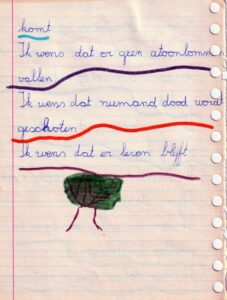 komt
Ik wens dat er geen atoonbomm
vallen
Ik wens dat niemand dood word
geschoten
Ik wens dat er leven blijft